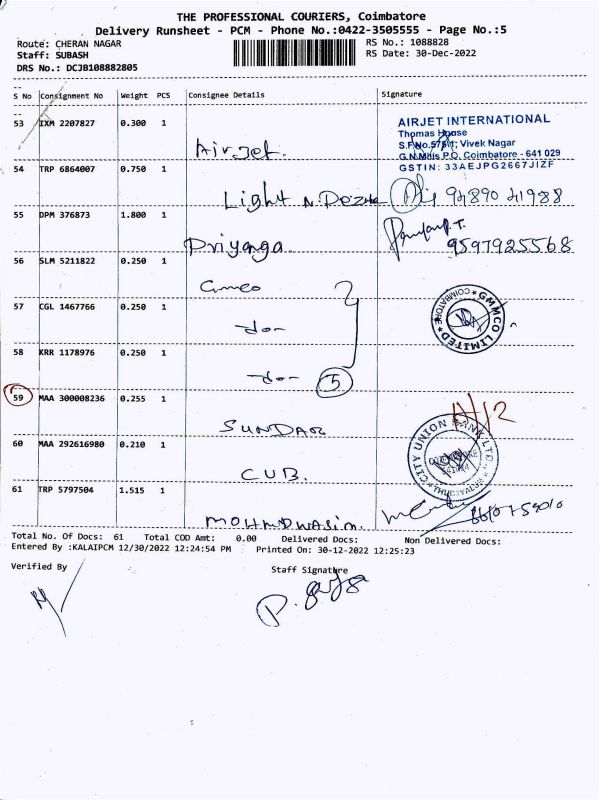 THE PROFESSIONAL COURIERS, Coimbatore
Delivery Runsheet - PCM - Phone No.:0422-3505555 - Page No.:5
Route: CHERAN NAGAR
RS No.: 1088828
Staff: SUBASH
RS Date: 30-Dec-2022
DRS No.: DCJB108882805
S No Consignment No Weight PCS Consignee Details Signature
53 IXM 2207827 0.300 1
Airjet.
AIRJET INTERNATIONAL
Thomas House
S.F.No.575/1; Vivek Nagar
G.N.Mills P.O. Coimbatore - 641 029
GSTIN: 33AEJPG2667J1ZF
54 TRP 6864007 0.750 1
Light N.
55 DPM 376873 1.800 1
Priyanga
9597925568
56 SLM 5211822 0.250 1
57 CGL 1467766 0.250 1
-do-
GMMCO LIMITED
COIMBATORE
58 KRR 1178976 0.250 1
-do- 5
59 MAA 300008236 0.255 1
SUNDAR
60 MAA 292616980 0.210 1
CUB.
CITY UNION BANK LTD
61 TRP 5797504 1.515 1
Total No. Of Docs: 61 Total COD Amt: 0.00 Delivered Docs: Non Delivered Docs:
Entered By :KALAIPCM 12/30/2022 12:24:54 PM Printed On: 30-12-2022 12:25:23
Verified By
Staff Signature